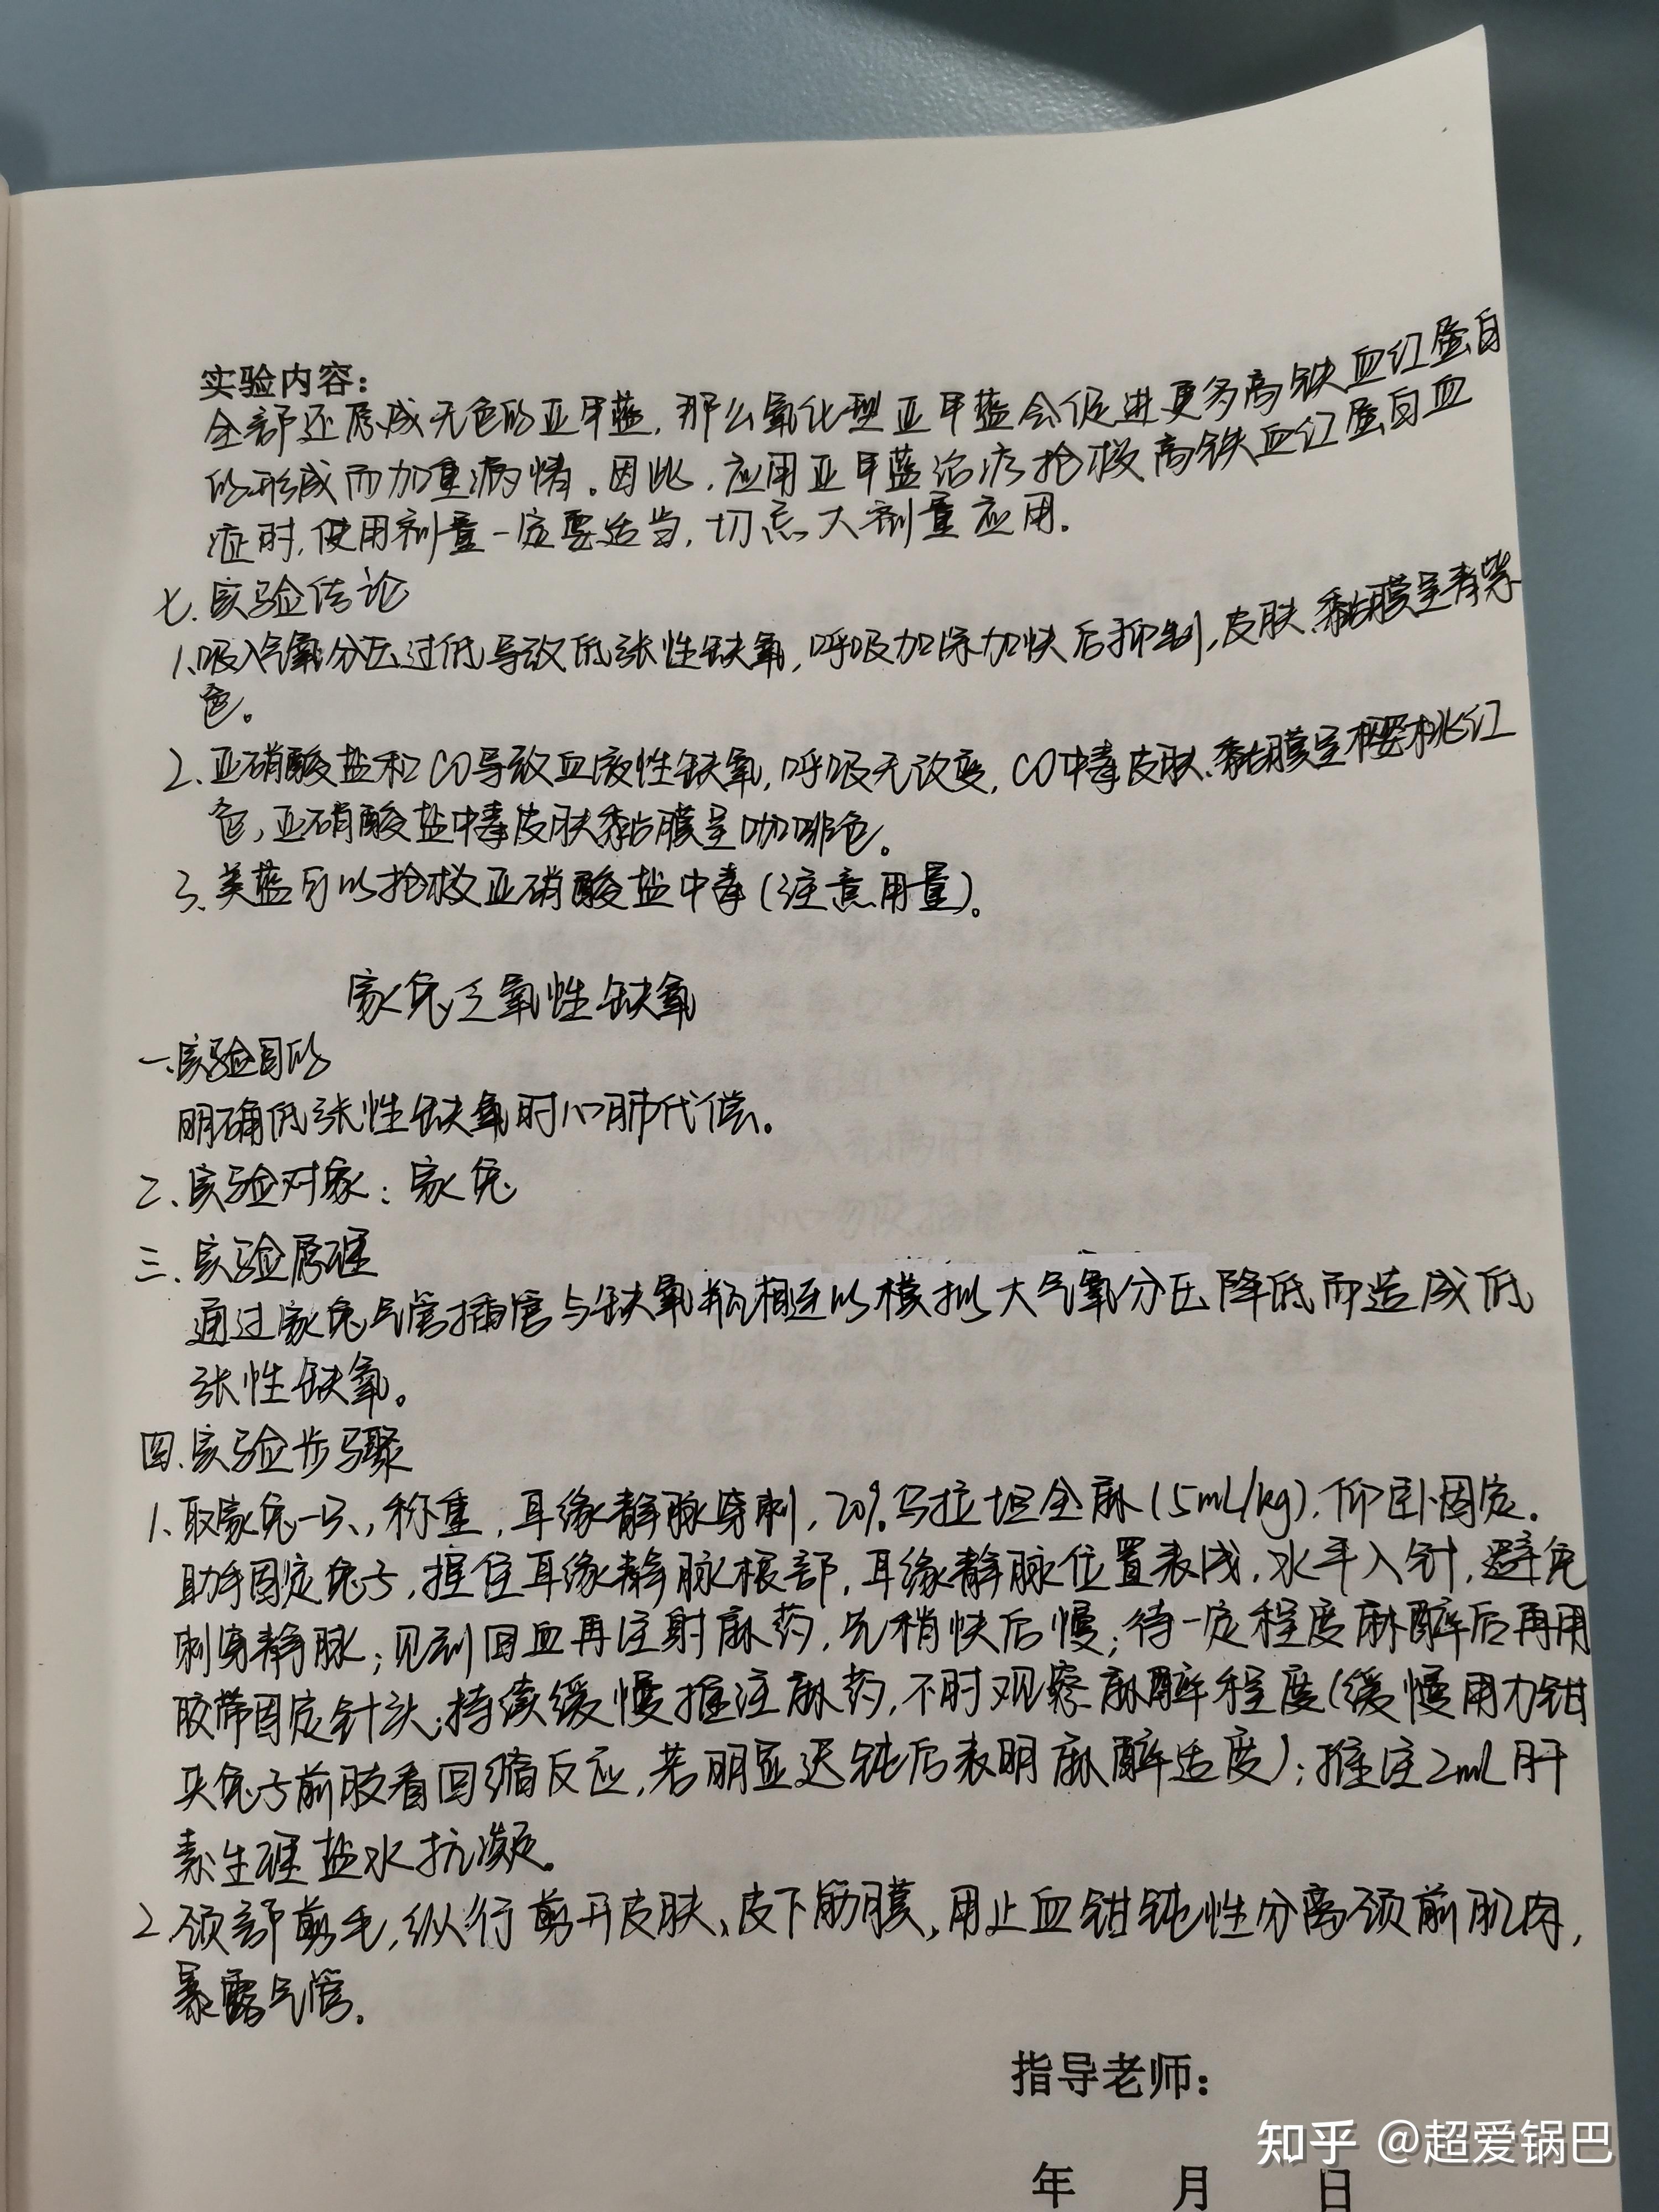 实验内容：
全部还原成无色的亚甲蓝，那么氧化型亚甲蓝会促进更多高铁血红蛋白
的形成而加重病情。因此，应用亚甲蓝治疗抢救高铁血红蛋白血
症时，使用剂量一定要适当，切忌大剂量应用。
七、实验结论
1、吸入气氧分压过低导致低张性缺氧，呼吸加深加快后抑制，皮肤、黏膜呈青紫
色。
2、亚硝酸盐和CO导致血液性缺氧，呼吸无改变，CO中毒皮肤、黏膜呈樱桃红
色，亚硝酸盐中毒皮肤黏膜呈咖啡色。
3、美蓝可以抢救亚硝酸盐中毒（注意用量）。
家兔乏氧性缺氧
一、实验目的
明确低张性缺氧时心肺代偿。
二、实验对象：家兔
三、实验原理
通过家兔气管插管与缺氧瓶相连以模拟大气氧分压降低而造成低
张性缺氧。
四、实验步骤
1、取家兔一只，称重，耳缘静脉穿刺，20%乌拉坦全麻（5mL/kg），仰卧固定。
助手固定兔子，握住耳缘静脉根部，耳缘静脉位置表浅，水平入针，避免
刺穿静脉；见到回血再注射麻药，先稍快后慢；待一定程度麻醉后再用
胶带固定针头；持续缓慢推注麻药，不时观察麻醉程度（缓慢用力钳
夹兔子前肢看回缩反应，若明显迟钝后表明麻醉适度）；推注2mL肝
素生理盐水抗凝。
2、颈部剪毛，纵行剪开皮肤、皮下筋膜，用止血钳钝性分离颈前肌肉，
暴露气管。
指导老师：
知乎 @超爱锅巴
年 月 日